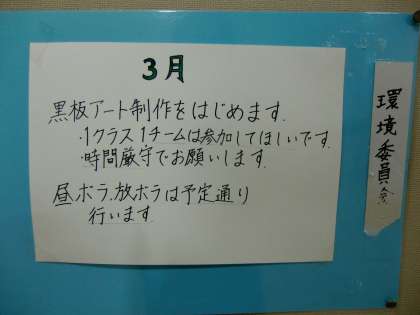 3月
黒板アート制作をはじめます.
・1クラス1チームは参加してほしいです.
・時間厳守でお願いします.
昼ボラ.放ボラは予定通り
行います.
環境委員会